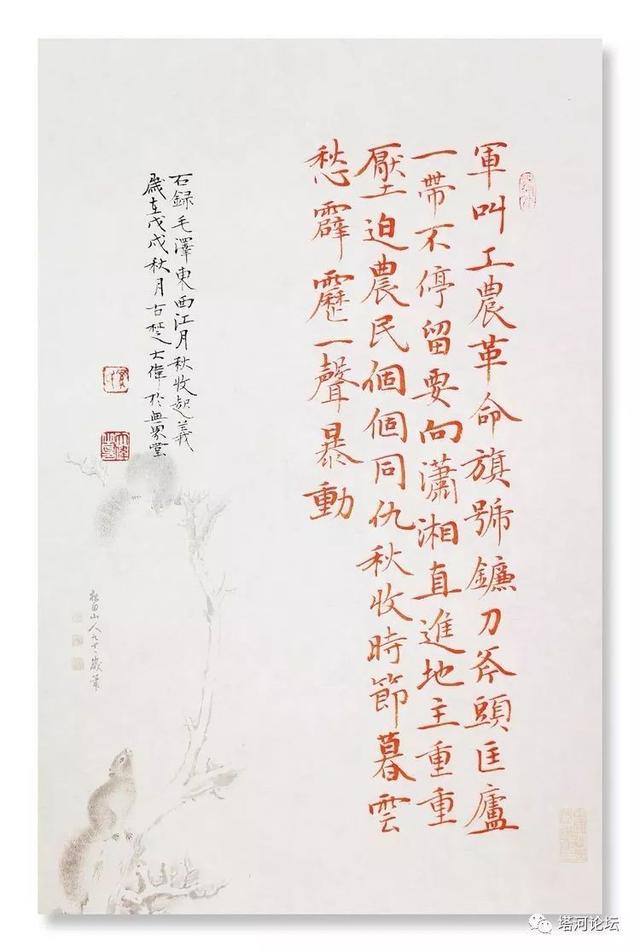 軍叫工農革命旗號鐮刀斧頭匡廬
一帶不停留要向瀟湘直進地主重重
壓迫農民個個同仇秋收時節暮雲
愁霹靂一聲暴動
右録毛澤東西江月秋收起義
歲在戊戌秋月古楚大偉於無界堂
山人九十歲筆
塔河论坛